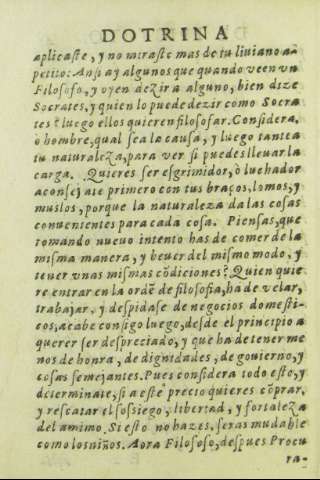 DOTRINA
aplicaste, y no miraste mas de tu liuiano a-
petito: Ansi ay algunos que quando veen vn
Filosofo, y oyen dezir a alguno, bien dize
Socrates, y quien lo puede dezir como Socra
tes? luego ellos quieren filosofar. Considera,
ò hombre, qual sea la causa, y luego tantea
tu naturaleza, para ver si puedes lleuar la
carga. Quieres ser esgrimidor, ò luchador
aconsejate primero con tus braços, lomos, y
muslos, porque la naturaleza da las cosas
conuenientes para cada cosa. Piensas, que
tomando nueuo intento has de comer de la
misma manera, y beuer del mismo modo, y
tener vnas mismas cōdiciones? Quien quie
re entrar en la ordē de filosofia, ha de velar,
trabajar, y despidase de negocios domesti-
cos, acabe consigo luego, desde el principio a
querer ser despreciado, y que ha de tener me
nos de honra, de dignidades, de gouierno, y
cosas semejantes. Pues considera todo esto, y
determinate, si a este precio quieres cōprar,
y rescatar el sossiego, libertad, y fortaleza
del animo. Si esto no hazes, seras mudable
como los niños. Aora Filosofo, despues Procu
ra-